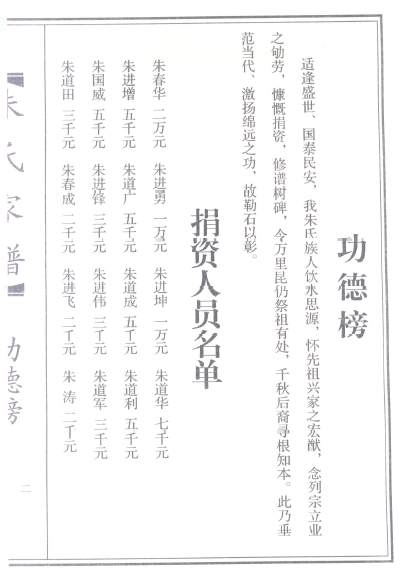 功德榜
适逢盛世、国泰民安，我朱氏族人饮水思源，怀先祖兴家之宏猷，念列宗立业
之劬劳，慷慨捐资，修谱树碑，令万里昆仍祭祖有处，千秋后裔寻根知本。此乃垂
范当代、激扬绵远之功，故勒石以彰。
捐资人员名单
朱春华 二万元 朱进勇 一万元 朱进坤 一万元 朱道华 七千元
朱进增 五千元 朱道广 五千元 朱道成 五千元 朱道利 五千元
朱国威 五千元 朱进锋 三千元 朱进伟 三千元 朱道军 三千元
朱道田 三千元 朱春成 二千元 朱进飞 二千元 朱 涛 二千元
【朱氏家谱】 功德榜 二